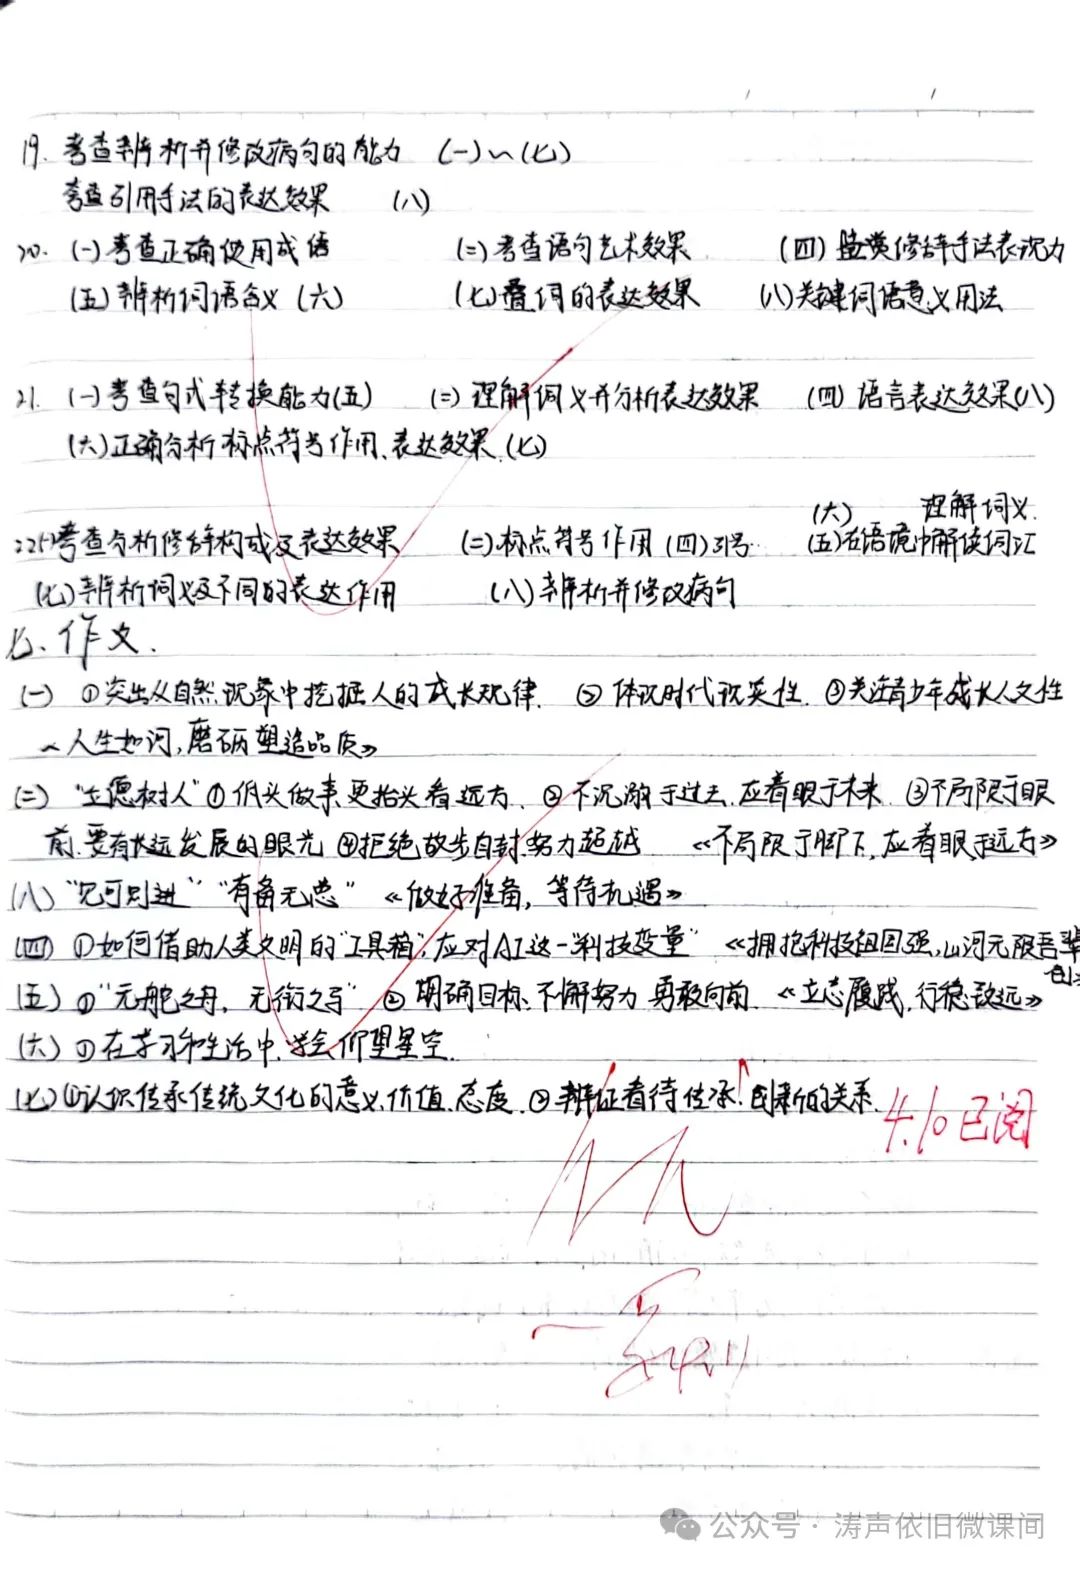 19. 考查辨析并修改病句的能力 (一)~(七)
考查引用手法的表达效果 (八)
20. (一)考查正确使用成语 (二)考查语句艺术效果 (四)修辞手法表现力
(五)辨析词语含义 (六) (七)叠词的表达效果 (八)关键词语意义用法
21. (一)考查句式转换能力(五) (二)理解词义并分析表达效果 (四)语言表达效果(八)
(六)正确分析标点符号作用、表达效果.(七)
(六) 理解词义.
22(一)考查分析修辞构成及表达效果 (二)标点符号作用 (四)引号… (五)在语境中解读词汇
(七)辨析词义及不同的表达作用 (八)辨析并修改病句
七、作文.
(一) ①突出从自然现象中挖掘人的成长规律. ②体现时代现实性. ③关注青少年成长人文性
《人生如河,磨砺塑造品质》
(二) "立德树人"①低头做事更抬头看远方. ②不沉溺于过去,应着眼于未来. ③不局限于眼
前,要有长远发展的眼光 ④拒绝故步自封,努力超越 《不局限于脚下,应着眼于远方》
(八) "见可则进" "有备无患" 《做好准备,等待机遇》
(四) ①如何借助人类文明的"工具箱",应对AI这一"科技变量" 《拥抱科技祖国强,山河无限吾辈
创
(五) ①"无舵之舟,无衔之马" ②明确目标、不懈努力 勇敢向前. 《立志履践,行稳致远》
(六) ①在学习和生活中,学会仰望星空.
(七) ①认识传承传统文化的意义、价值、态度. ②辩证看待传承、创新的关系.
4.10已阅
公众号·涛声依旧微课间